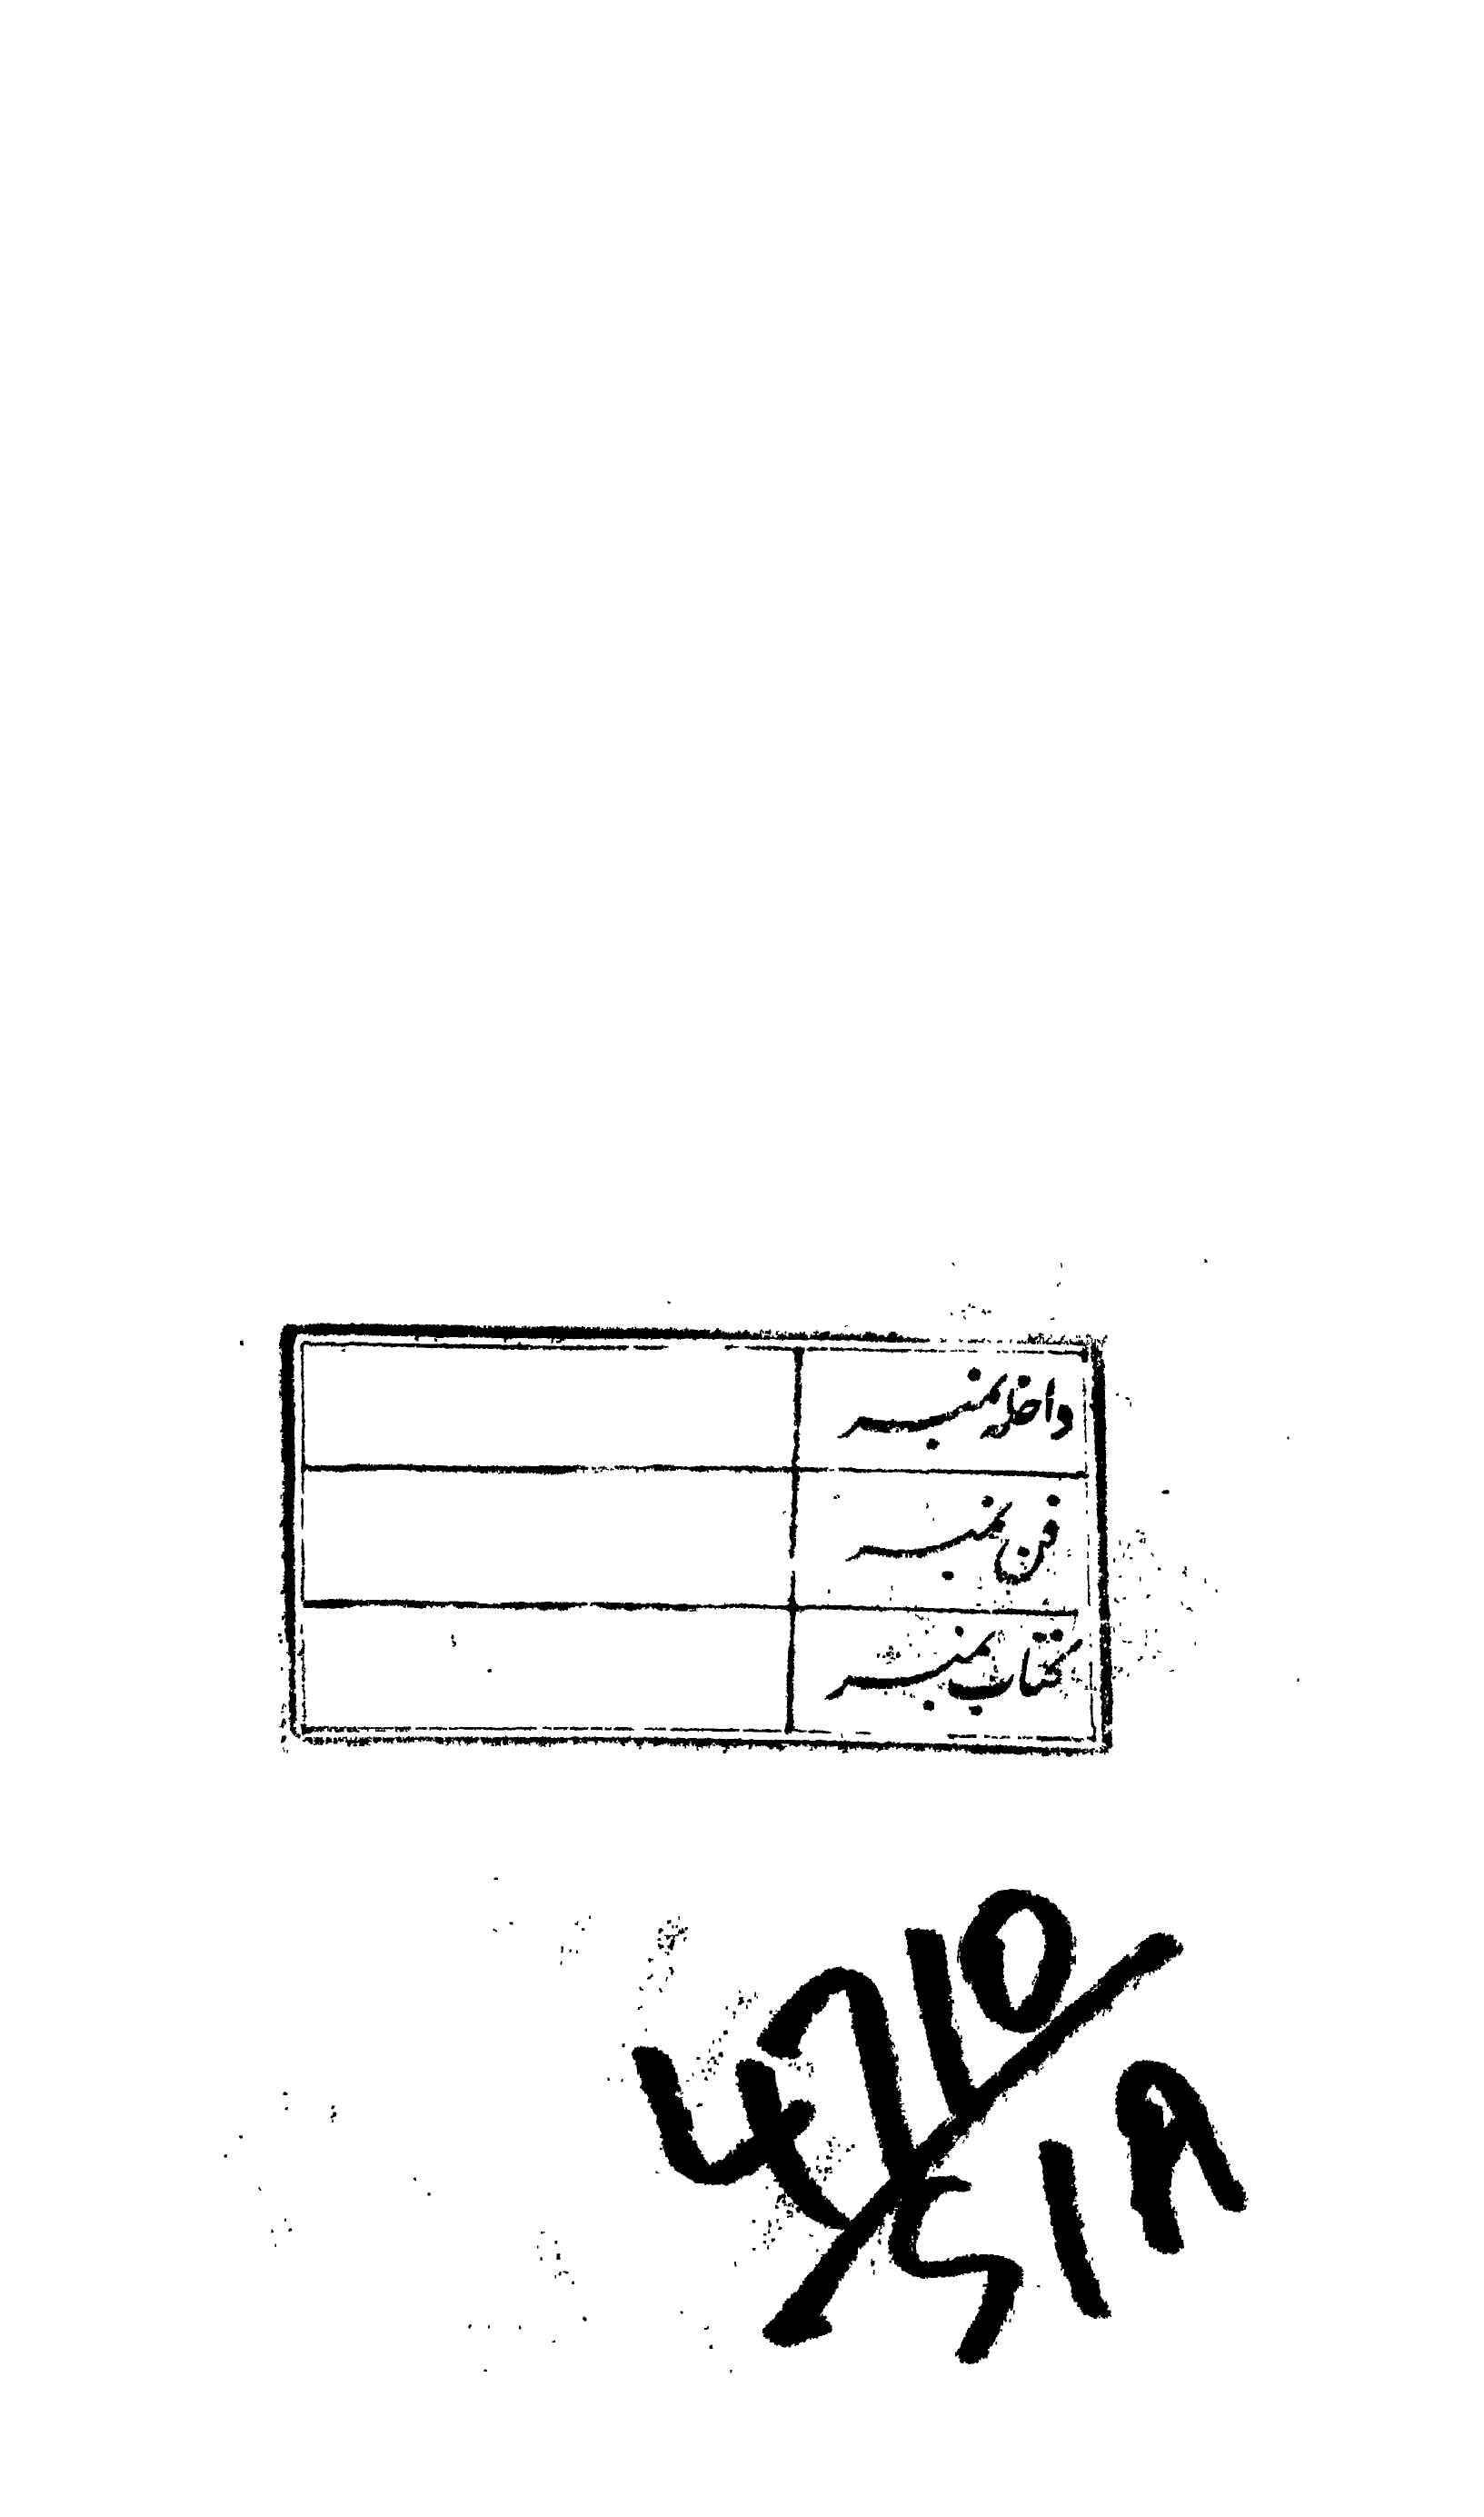 داخلہ نمبر
فن نمبر
کتاب نمبر
4710
51A